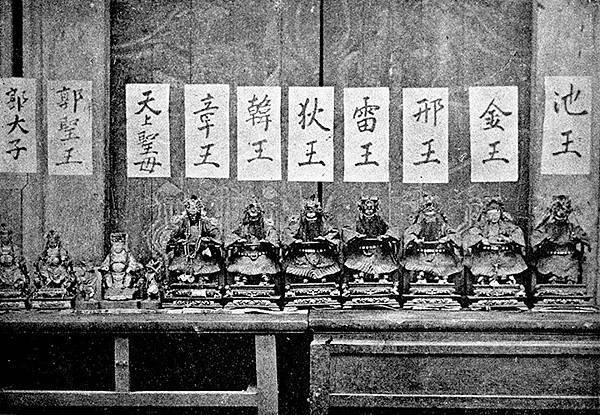 池王
金王
邢王
雷王
狄王
韓王
章王
天上聖母
郭聖王
郭大子